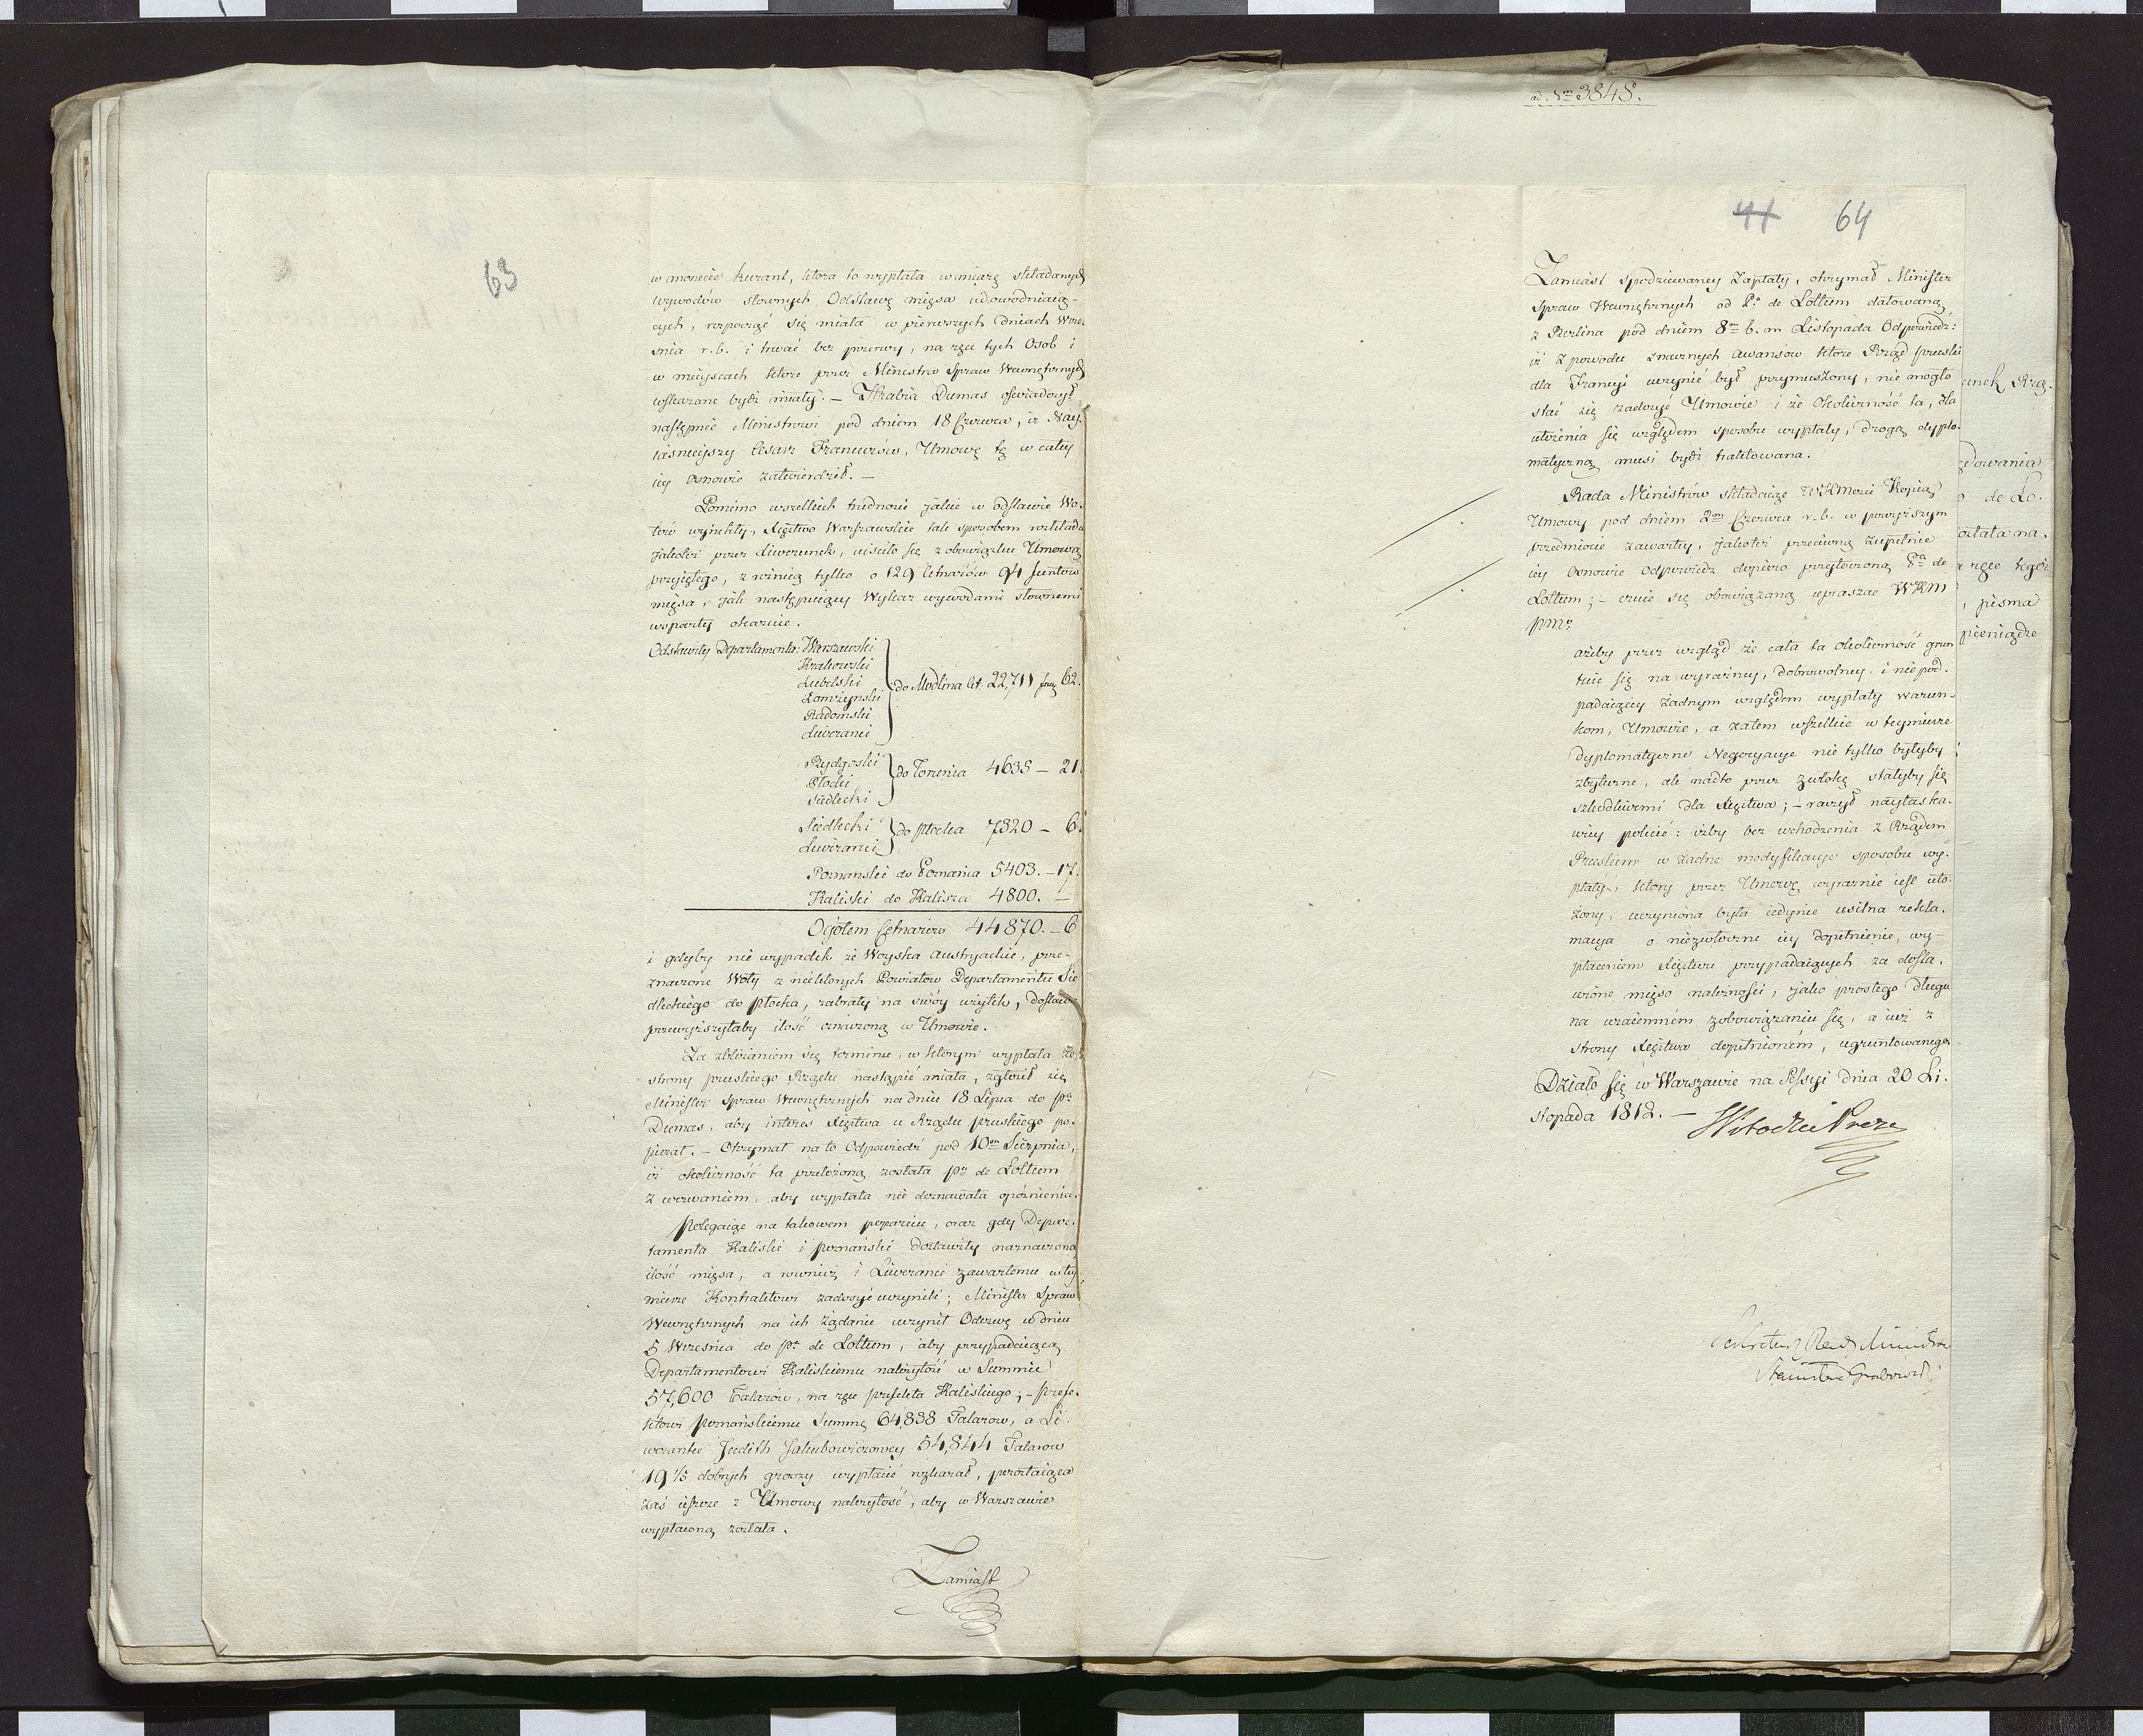 63
w monecie kurant, ktora to wypłata w miarę składanych
wywodów słownych Odstawę mięsa udowodniaią-
cych, rozpocząć się miała w pierwszych dniach Wrze-
śnia r.b. i trwać bez przerwy, na ręce tych Osob i
w mieyscach ktore przez Ministra Spraw Wewnętrznych
wskazane bydź miały. — Hrabia Dumas oświadczył
następnie Ministrowi pod dniem 18 Czerwca, iz Nay-
iaśnieyszy Cesarz Francuzów, Umowę tę w całey
iey osnowie zatwierdził. —
Pomimo wszelkich trudności jakie w odstawie Wo-
łów wynikły, Xięstwo Warszawskie tak sposobem rozkładu
jakoteż przez Liwerunek, uiściło się z obowiązku Umową
przyiętego, z różnicą tylko o 129 Cetnarów 94 funtów
mięsa, jak następuiący Wykaz wywodami słownemi
wsparty okazuie.
Odstawiły Departamenta: Warszawski
Krakowski
Lubelski
Łomżynski
Radomski
Liweranci
do Modlina Cet. 22,711 fun. 62.
Bydgoski
Płocki
Siedlecki
do Torunia 4635 — 21.
Siedlecki
Liweranci
do Płocka 7320 — 6.
Poznanski do Poznania 5403. — 17.
Kaliski do Kalisza 4800. —
Ogółem Cetnarów 44870. — 6
i gdyby nie wypadek że Woyska Austryackie, prze-
znaczone Woły z niektorych Powiatów Departamentu Sie
dleckiego do Płocka, zabrały na swóy użytek, dostawa
przewyższyłaby ilość oznaczoną w Umowie.
Za zbliżaniem się terminu, w ktorym wypłata ze
strony pruskiego Rządu nastąpić miała, zgłosił się
Minister Spraw Wewnętrznych na dniu 18 Lipca do Pa
Dumas, aby interes Xięstwa u Rządu pruskiego po-
pierał. — Otrzymał na to Odpowiedź pod 10m Sierpnia,
iż okoliczność ta przełożoną została Pu de Lottum
z wezwaniem, aby wypłata nie doznawała opóźnienia.
Polegaiąc na takowem poparciu, oraz gdy Depar-
tamenta Kaliski i poznański dostawiły naznaczoną
ilość mięsa, a rownież i Liweranci zawartemu w tey
mierze Kontraktowi zadosyć uczynili; Minister Spraw
Wewnętrznych na ich żądanie uczynił Odezwę w dniu
5 Września do Pa de Lottum, aby przypadaiącą
Departamentowi Kaliskiemu należytość w Summie
57,600 Talarów, na ręce prefekta Kaliskiego; — prefe-
ktowi Poznańskiemu Summę 64,838 Talarow, a Li-
werantce Judith Jakubowiczowey 54,844 Talarow
19 1/5 dobrych groszy wypłacić rozkazał, pozostaiąca
zaś ieszcze z Umowy należytość, aby w Warszawie
wypłaconą została.
Zamiast
ad. Nm 3848.
41 64
Zamiast spodziewaney Zapłaty, otrzymał Minister
Spraw Wewnętrznych od Pa de Lottum datowaną
z Berlina pod dniem 8m b. m Listopada Odpowiedź:
iż z powodu znacznych awansów ktore Rząd pruski
dla Francyi uczynić był przymuszony, nie mogło
stać się zadosyć Umowie i że Okoliczność ta, dla
ułożenia się względem sposobu wypłaty, drogą dyplo-
matyczną musi bydź traktowana.
Rada Ministrów składaiąc WKMci Kopią
Umowy pod dniem 2m Czerwca r.b. w powyższym
przedmiocie zawartey, jakoteż przeciwną zupełnie
iey Osnowie Odpowiedź dopiero przytoczoną Pa de
Lottum; — czuie się obowiązaną upraszać WKM
Pmo
ażeby przez wzgląd że cała ta Okoliczność grun
tuie się na wyraźney, dobrowolney i niepod-
padaiącey żadnym względem wypłaty warun-
kom, Umowie, a zatem wszelkie w tey mierze
dyplomatyczne Negocyacye nie tylko byłyby
zbyteczne, ale nadto przez zwłokę stałyby się
szkodliwemi dla Xięstwa; — raczył nayłaska-
wiey polecić: iżby bez wchodzenia z Rządem
Pruskim w żadne modyfikacye sposobu wy-
płaty, ktory przez Umowę wyraznie iest uło-
żony, uczyniona była iedynie usilna rekla-
macya o niezwłoczne iey dopełnienie, wy-
płaceniem Xięstwu przypadaiących za dosta-
wione mięso należności, jako prostego długu
na wzaiemném zobowiązaniu się, a już z
strony Xięstwa dopełnioném, ugruntowanego.
Działo się w Warszawie na Sessyi dnia 20 Li-
stopada 1812. —
Sekretarz Rady Ministrow
Stanisław Grabowski
unek Rzą-
dowania
de Lo-
ostała na-
ręce tegoż
, pisma
pieniądze